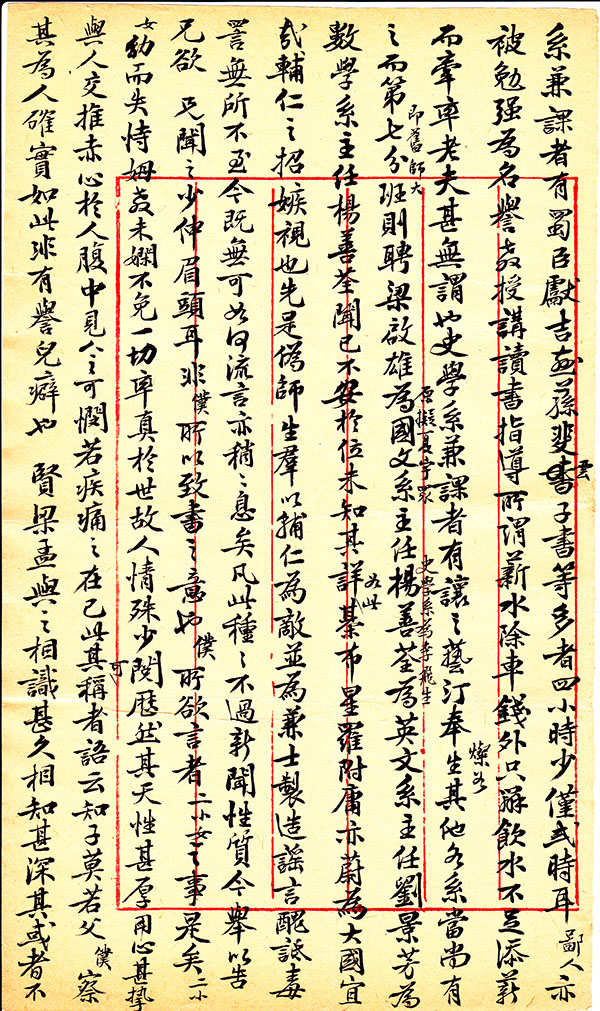 系兼課者有蜀丞獻吉孫斐雲子書等多者四小時少僅弍時耳鄙人亦
被勉强為名譽教授講讀書指導所謂薪水除車錢外只辦飲水不足添薪
而牽率老夫甚無謂也史學系兼課者有讓之藝汀奉生其他各系當尚有燦如
之而第七分班即舊師大則聘梁啟雄為國文系主任原擬夏宇眾楊善荃為英文系主任史學系為李飛生劉景芳為
數學系主任楊善荃聞已不安於位未知其詳如此綦布星羅附庸亦蔚為大國宜
弍輔仁之招嫉視也先是偽師生羣以輔仁為敵並為兼士製造謠言醜詆毒
詈無所不至今既無可如何流言亦稍之息矣凡此種之不過新聞性質今舉以告
兄欲 兄聞之少伸眉頭耳非僕所以致書之意也僕所欲言者二小女之事是矣二小
女幼而失恃姆教未嫻不免一切率真於世故人情殊少閱歷然其天性甚厚用心甚摯
與人交推赤心於人腹中見人之可憫若疾痛之在己此其可稱者語云知子莫若父僕察
其為人確實如此非有譽兒癖也 賢梁孟與之相識甚久相知甚深其或者不